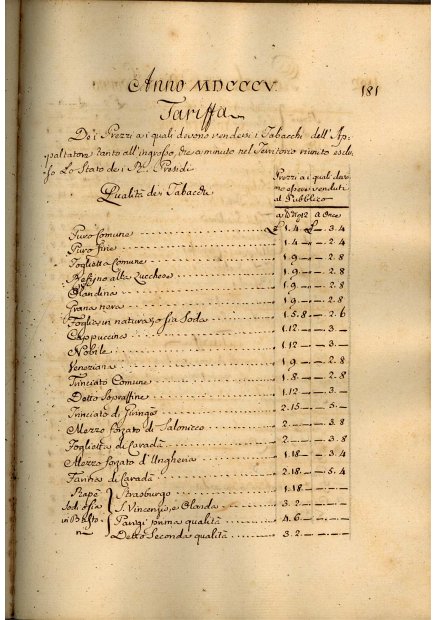 181
Anno MDCCCV.
Tariffa
De i Prezzi a i quali devono vendersi i Tabacchi dell'Ap-
paltatore tanto all'ingrosso, che a minuto nel Territorio riunito esclu-
so Lo Stato de i Rl. Presidi
Prezzi a i quali devo-
no essere venduti
al Pubblico
Qualità dei Tabacchi
a once
Puro Comune £ 1. 4 £ — 3. 4
Puro fine 1. 4 — — 2. 4
Foglietta Comune 1. 9 — — 2. 8
alla Zucchero 1. 9 — — 2. 8
Olandina 1. 9 — — 2. 8
Grana nera 1. 9 — — 2. 8
Foglia in natura, o sia Soda 1. 5. 8 — 2. 6
Cappuccino 1. 12 — — 3 —
Nobile 1. 12 — — 3 —
Veneziana 1. 9 — — 2. 8
Trinciato Comune 1. 8 — — 2. 8
Detto Sopraffine 1. 12 — — 3 —
Trinciato di 2. 15 — — 5 —
Mezzo forzato di Salonicco 2 — — — 3. 8
Foglietta di Caradà 2 — — — 3. 8
Mezzo forzato d'Ungheria 1. 18 — — 3. 4
di Caradà 2. 18 — — 5. 4
Rapè Strasburgo 1. 18 — — —
Sodi o sia S. Vincenzo, e Olanda 3. 2 — — —
in Parigi prima qualità 4. 6 — — —
Detto Seconda qualità 3. 2 — — —